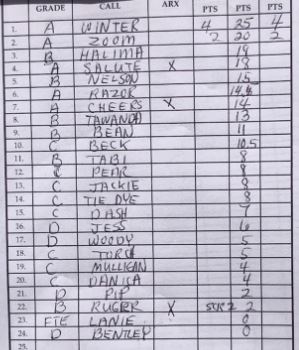 GRADE CALL ARX PTS PTS PTS
1. A WINTER 4 25 4
2. A ZOOM 2 20 2
3. B HALIMA 19
4. A SALUTE X 18
5. B NELSON 15
6. A RAZOR
7. A CHEERS X 14
8. B TAWANDA 13
9. B BEAN 11
10. C BECK 10.5
11. B TABI 8
12. C PEAR 8
13. C JACKIE 8
14. C TIE DYE 8
15. C DASH 7
16. D JESS 6
17. D WOODY 5
18. C TORCH 5
19. C MULLIGAN 4
20. C DANISA 4
21. D PIP 2
22. B RUGER X 2
23. LANIE 0
24. D BENTLEY 0
25.